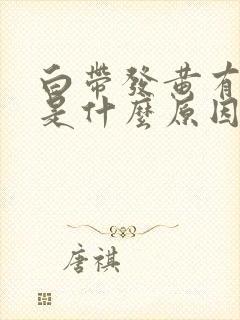 白帶發黃有
是什麼原因
唐祺